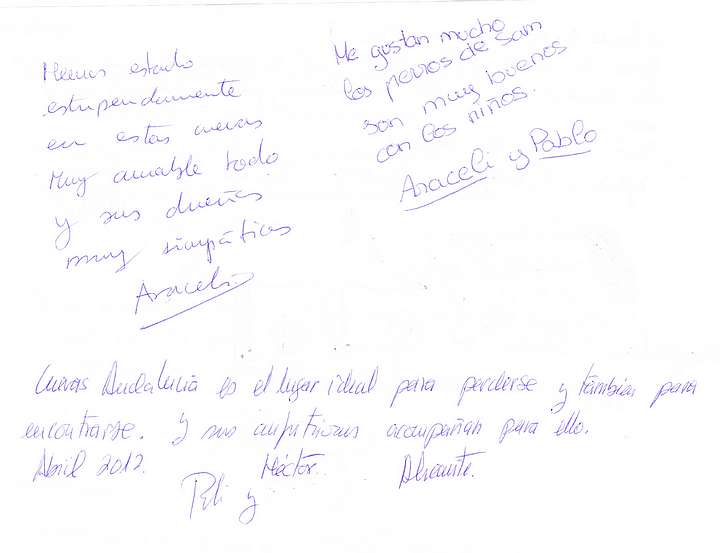 Hemos estado
estupendamente
en estas cuevas
Muy amable todo
y sus dueños
muy simpáticos
Araceli
Me gustan mucho
los perros de Sam
son muy buenos
con los niños.
Araceli y Pablo
Cuevas Andalucía es el lugar ideal para perderse y también para
encontrarse. Y sus anfitriones acompañan para ello.
Abril 2012. Héctor. Alicante.
y